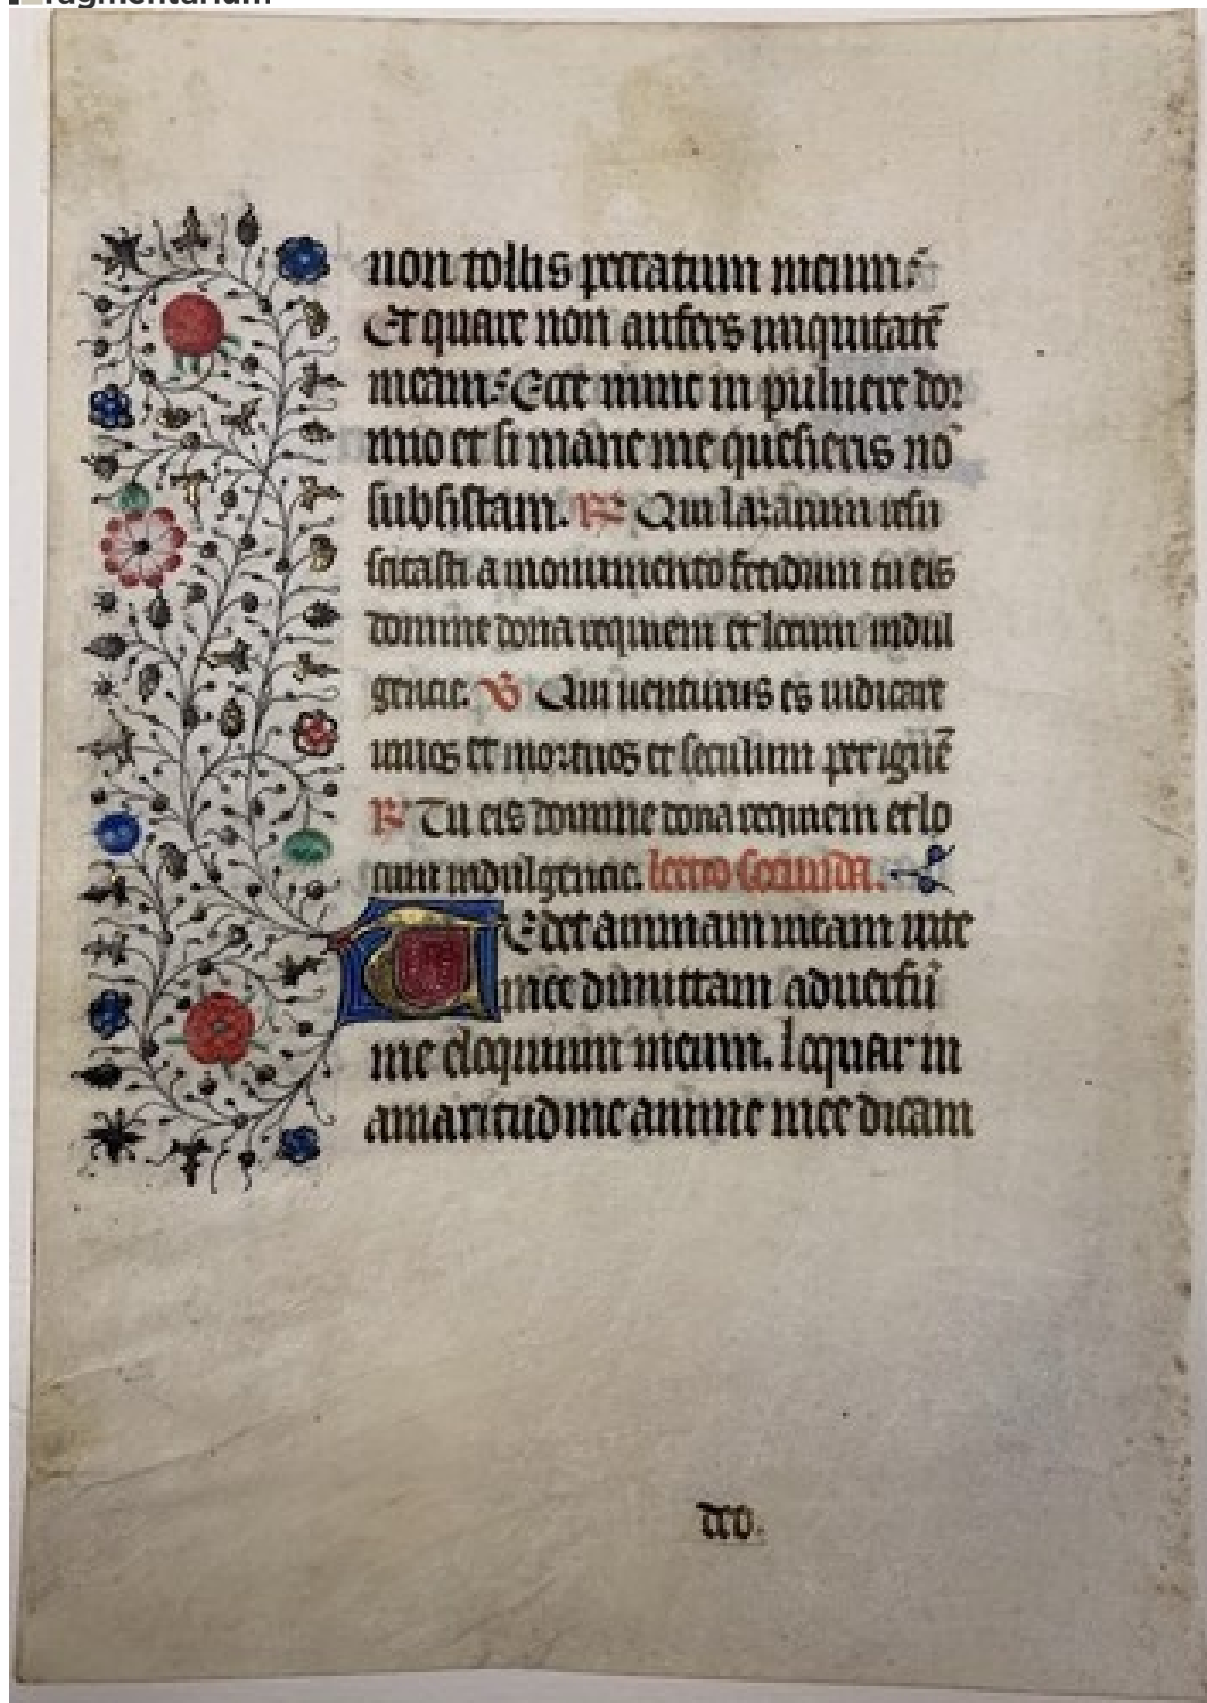 ragmentarium
non tollis peccatum meum?
Et quare non aufers iniquitatē
meam? Ecce nunc in puluere dor
mio et si mane me quesieris nō
subsistam. R Qui lazarum resu
scitasti a monumento fetidum tu eis
domine dona requiem et locum indul
gencie. V Qui uenturus es iudicare
uiuos et mortuos et seculum per ignē
R Tu eis domine dona requiem et lo
cum indulgencie. lectio secunda.
TEdet animam meam uite
mee dimittam aduersū
me eloquium meum. loquar in
amaritudine anime mee dicam
deo.